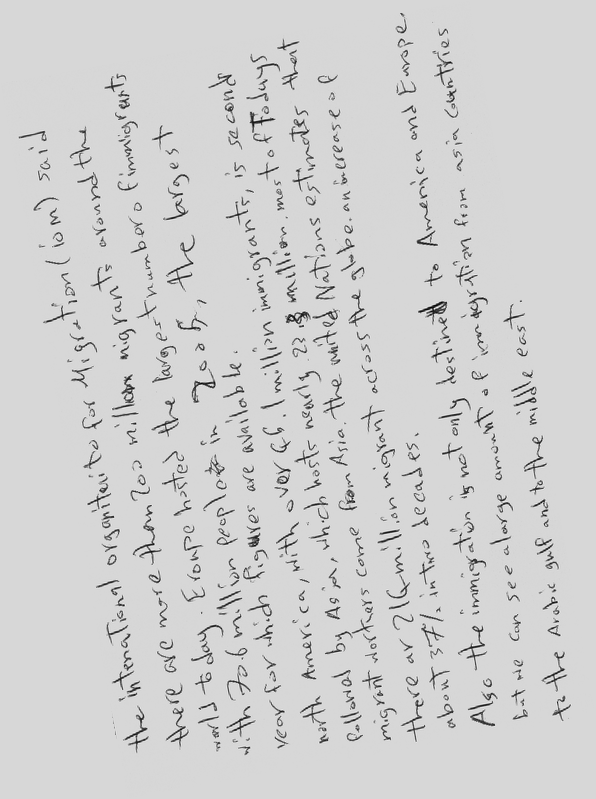 the international organiteito for Migration (iom) said
there are more than 200 million migrants around the
world today. Eroupe hosted the largest number of immigrants
with 70.6 million people in 2005, the largest
year for which figures are available.
north America, with over 45.1 million immigrants, is second
followed by Asia, which hosts nearly 23.3 million. most of todays
migrant workers come from Asia. the united Nations estimates that
there ar 214 million migrant across the globe. an increase of
about 37% in two decades.
Also the immigration is not only destined to America and Europe.
but we can see a large amount of immigration from asia countries
to the Arabic gulf and to the middle east.